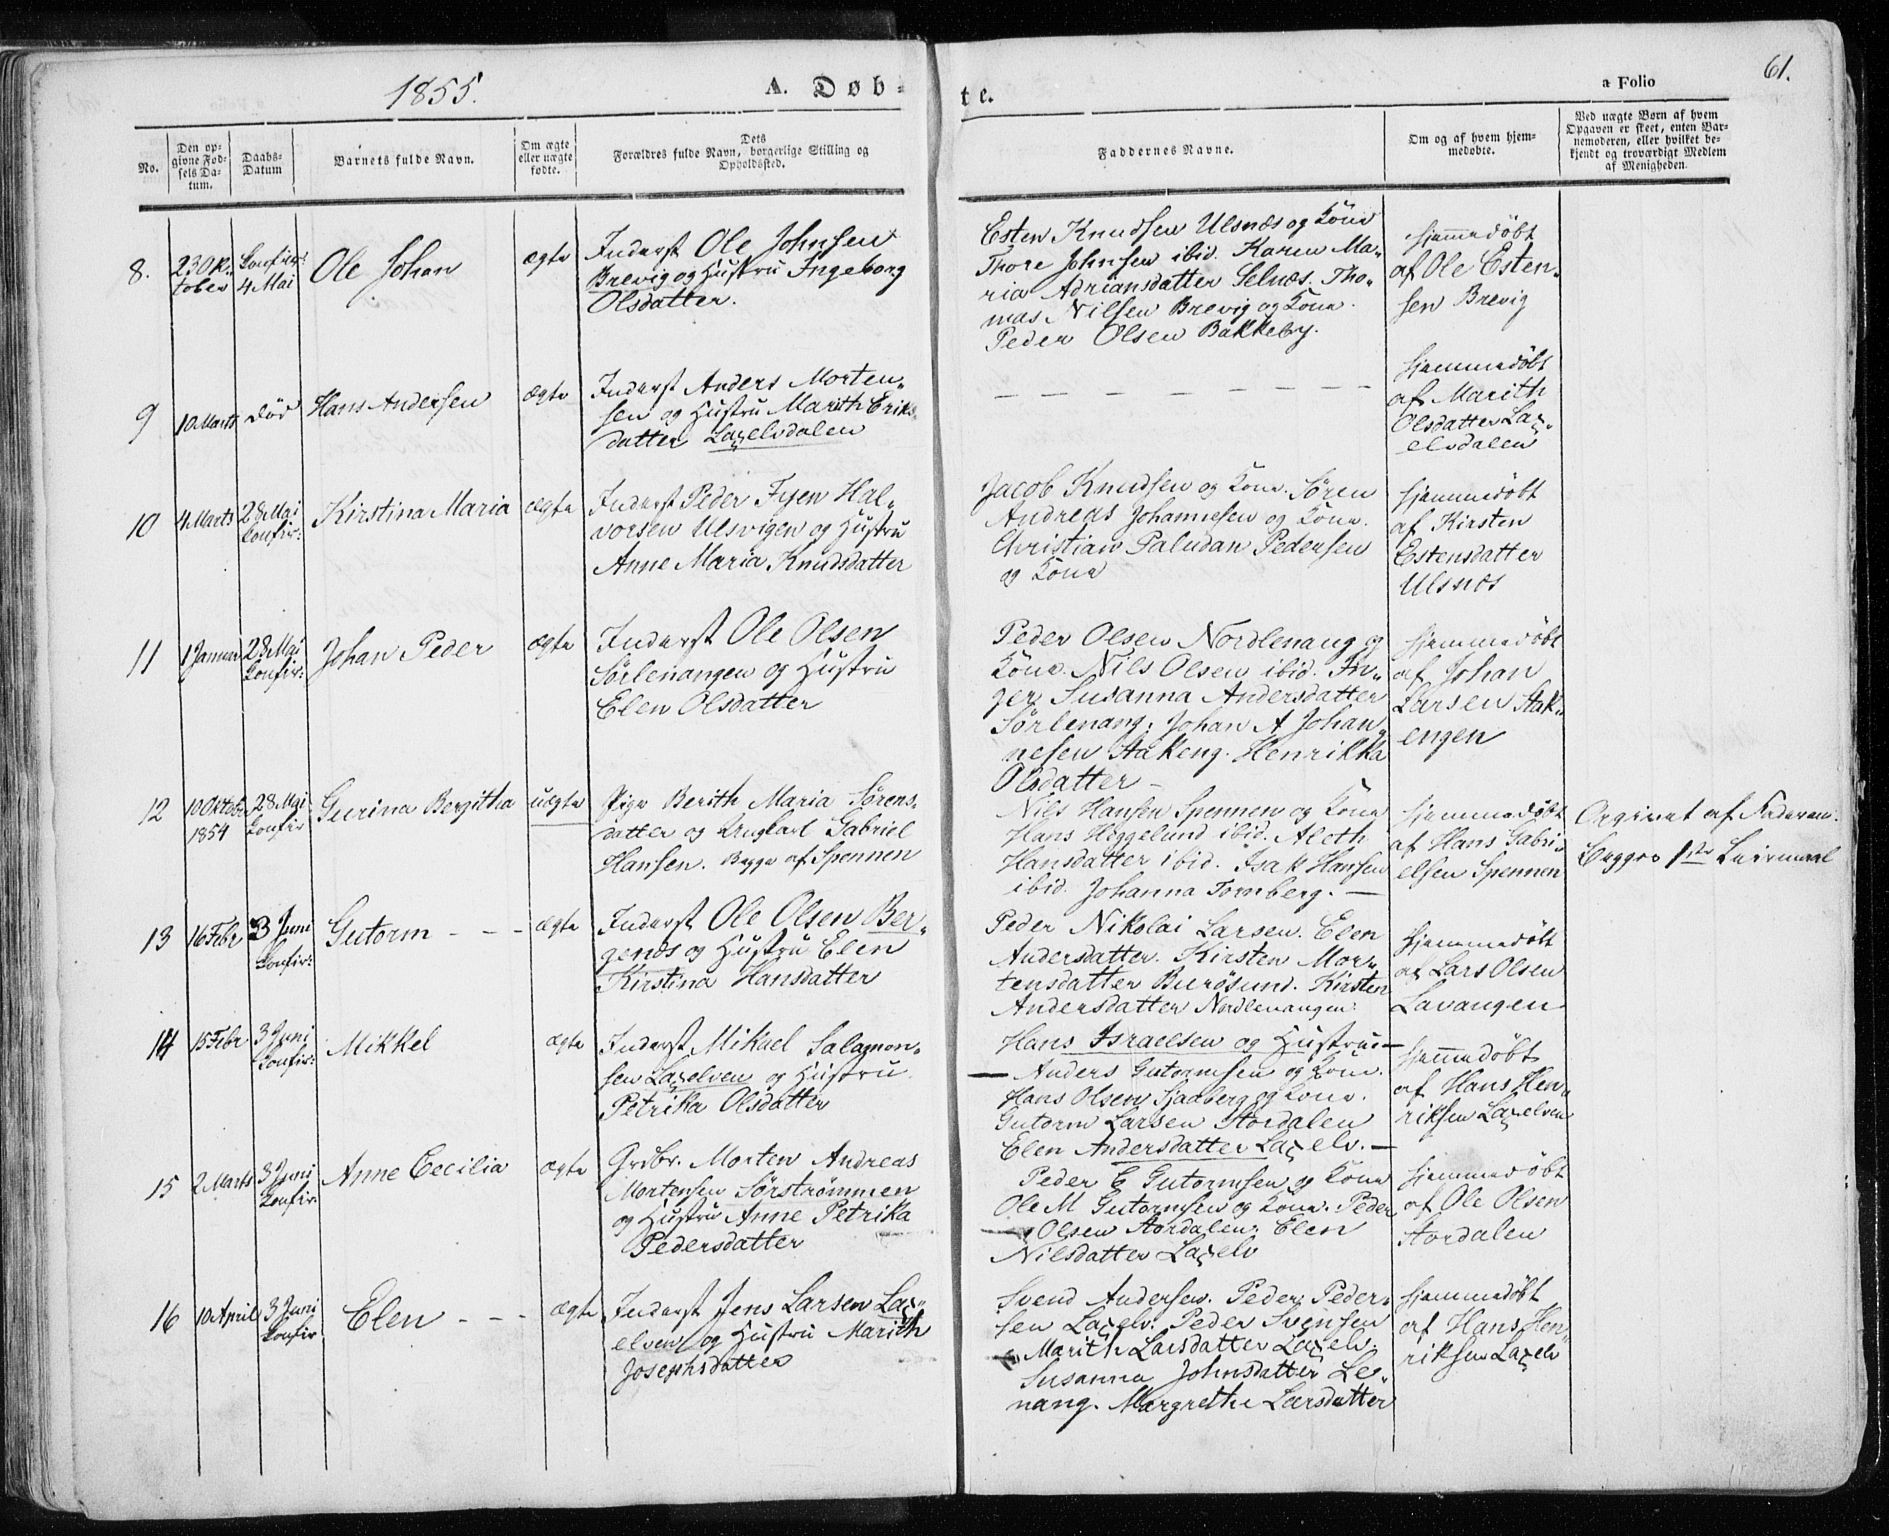 1855.
A. Døb-
te.
61.
a Folio
No.
Den op-
givne Fød-
sels Da-
tum.
Daabs-
Datum
Barnets fulde Navn.
Om ægte
eller uægte
fødte.
Dets
Forældres fulde Navn, borgerlige Stilling og
Opholdssted.
Faddernes Navne.
Om og af hvem hjem-
medøbte.
Ved uægte Børn af hvem
Opgaven er skeet, enten Bar-
nemoderen, eller hvilket be-
kjendt og troværdigt Medlem
af Menigheden.
8.
23 Ok-
tober
Confir:
4 Mai
Ole Johan
ægte
Inderst Ole Johnsen
Brevig og Hustru Ingeborg
Olsdatter.
Esten Knudsen Ulsnæs og Kone
Thore Johnsen ibid. Karen Ma-
ria Adriansdatter Selnæs. Tho-
mas Nilsen Brevig og Kone.
Peder Olsen Bakkeby.
hjemmedøbt
af Ole Esten-
sen Brevig
9
10 Marts
død
Hans Andersen
ægte
Inderst Anders Morten-
sen og Hustru Marith Eriks
datter Laxelvdalen
— — — — — — — —
hjemmedøbt
af Marith
Olsdatter Lax-
elvdalen
10
4 Marts
28 Mai
Confir:
Kirstina Maria
ægte
Inderst Peder Fyen Hal-
vorsen Ulsvigen og Hustru
Anne Maria Knudsdatter
Jacob Knudsen og Kone. Søren
Andreas Johannesen og Kone.
Christian Paludan Pedersen
og Kone
hjemmedøbt
af Kirsten
Estensdatter
Ulsnæs
11
1 Januar
28 Mai
Confir:
Johan Peder
ægte
Inderst Ole Olsen
Sørlenangen og Hustru
Elen Olsdatter
Peder Olsen Nordlenang og
Kone. Nils Olsen ibid. In-
ger Susanna Andersdatter
Sørlenang. Johan A Johan-
nesen Aakeng. Henrikka
Olsdatter —
hjemmedøbt
af Johan
Larsen Aak-
engen
12
10 Oktober
1854
28 Mai
Confir
Gurina Bergitha
uægte
Pige Berith Maria Sørens-
datter og Ungkarl Gabriel
Hansen. Begge af Spennen
Nils Hansen Spennen og Kone
Hans Heggelund ibid. Aleth
Hansdatter ibid. Isak Hansen
ibid. Johanna Tornberg. —
hjemmedøbt
af Hans Gabri-
elsen Spennen
Opgivet af Faderen.
Begges 1ste Leiermaal
13
16 Febr
3 Juni
Confir:
Gutorm - - -
ægte
Inderst Ole Olsen Ber-
genes og Hustru Elen
Kirstina Hansdatter
Peder Nikolai Larsen. Elen
Andersdatter. Kirsten Mor-
tensdatter Burøsund. Kirsten
Andersdatter Nordlenangen.
hjemmedøbt
af Lars Olsen
Lavangen
14
15 Febr
3 Juni
Confir:
Mikkel
ægte
Inderst Mikael Salamon-
sen Laxelven og Hustru
Petrika Olsdatter
Hans Israelsen og Hustrue—
— Anders Gutormsen og Kone.
Hans Olsen Sjaaberg og Kone.
Gutorm Larsen Stordalen
Elen Andersdatter Laxelv. —
hjemmedøbt
af Hans Hen-
riksen Laxelven
15
2 Marts
3 Juni
Confir
Anne Cecilia
ægte
Grdbr. Morten Andreas
Mortensen Sørstrømmen
og Hustru Anne Petrika
Pedersdatter
Peder E Gutormsen og Kone
Ole M Gutormsen og Kone. Peder
Olsen Stordalen. Elen
Nilsdatter Laxelv
hjemmedøbt
af Ole Olsen
Stordalen
16
10 April
3 Juni
Confir
Elen - - -
ægte
Inderst Jens Larsen Lax-
elven og Hustru Marith
Josephsdatter
Svend Andersen. Peder Peder-
sen Laxelv. Peder Svensen
Marith Larsdatter Laxelv.
Susanna Johnsdatter Le-
nang. Margrethe Larsdatter
hjemmedøbt
af Hans Hen-
riksen Laxelv